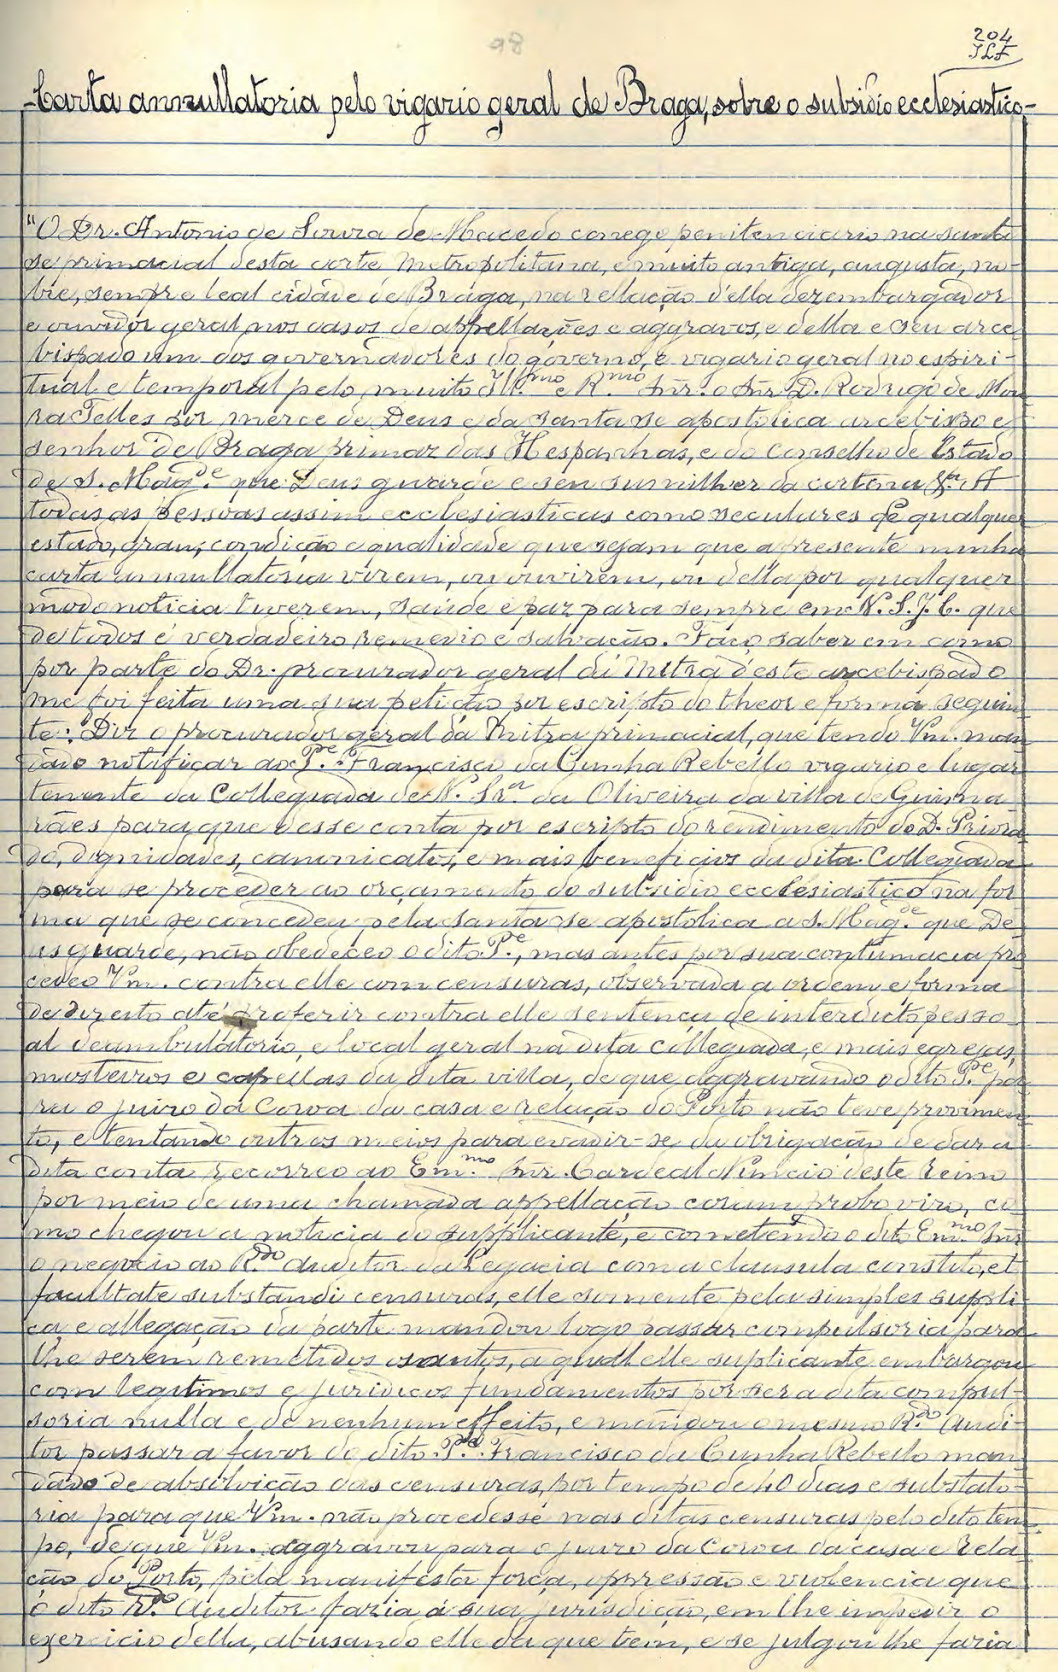 98
204
JLF
-Carta annullatoria pelo vigario geral de Braga, sobre o subsidio ecclesiastico-
"O Dr. Antonio de Souza de Macedo conego penitenciario na santa
se primacial desta corte Metropolitana, e muito antiga, augusta, no-
bre, sempre leal cidade de Braga, na rellação d'ella dezembargador
e ouvidor geral nos casos de appellações e aggravos, e della e seu arce-
bispado um dos governadores do governo, e vigario geral no espiri-
tual e temporal pelo muito Ill.mo e R.mo Snr. o Snr. D. Rodrigo de Mou
ra Telles por merce de Deus e da santa se apostolica arcebispo e
senhor de Braga primaz das Hespanhas, e do Conselho de Estado
de S. Mag.de que Deus guarde e seu sumilher da cortina &.a A
todas as pessoas assim ecclesiasticas como seculares de qualquer
estado, grau, condição e qualidade que sejam que a presente minha
carta annullatoria virem, ou ouvirem, ou della por qualquer
modo noticia tiverem, saude e paz para sempre em N. S. J. C. que
de todos é verdadeiro remedio e salvação. Faço saber em como
por parte do Dr. procurador geral da Mitra d'este arcebispado
me foi feita uma sua petição por escripto do theor e forma seguin
te: Diz o procurador geral da Mitra primacial, que tendo Vm. man
dado notificar ao P.e Francisco da Cunha Rebello vigario e lugar
tenente da Collegiada de N. Sr.a da Oliveira da villa de Guima
rães para que desse conta por escripto do rendimento do D. Priora
do, dignidades, canonicatos, e mais beneficios da dita Collegiada
para se proceder ao orçamento do subsidio ecclesiastico na for
ma que se concedeu pela santa se apostolica a S. Mag.de que De
us guarde, não obedeceo o dito P.e, mas antes por sua contumacia pro
cedeo Vm. contra elle com censuras, observada a ordem e forma
de direito até proferir contra elle sentença de interdicto pesso
al deambulatorio, e local geral na dita collegiada, e mais egrejas,
mosteiros e capellas da dita villa, de que aggravando o dito P.e pa
ra o juizo da Coroa da casa e relação do Porto não teve provimen
to, e tentando outros meios para evadir-se da obrigação de dar a
dita conta recorreo ao Em.mo Snr. Cardeal Nuncio deste reino
por meio de uma chamada appellação coram probo viro, co
mo chegou a noticia do supplicante, e cometendo o dito Em.mo Snr
o negocio ao R.do auditor da Legacia com a clausula constito, et
facultate substandi censuras, elle somente pela simples suppli
ca e allegação da parte mandou logo passar compulsoria para
lhe serem remetidos os autos, a qual elle suplicante embargou
com legitimos e juridicos fundamentos por ser a dita compul-
soria nulla e de nenhum effeito, e mandou o mesmo R.do Audi-
tor passar a favor do dito P.e Francisco da Cunha Rebello man
dado de absolvição das censuras, por tempo de 40 dias e substato-
ria para que Vm. não procedesse nas ditas censuras pelo dito tem
po, de que Vm. aggravou para o juizo da Coroa da casa e Rela
ção do Porto, pela manifesta força, oppressão e violencia que
o dito R.do Auditor fazia á sua jurisdição, em lhe impedir o
exercicio della, abusando elle da que tem, e se julgou lhe fazia